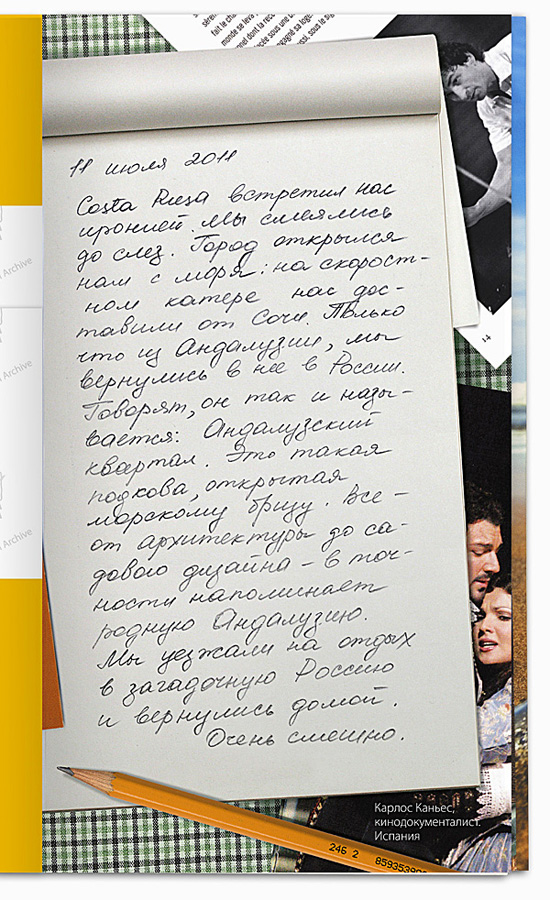 11 июля 2011
Costa Rusa встретил нас
иронией. Мы смеялись
до слез. Город открылся
нам с моря: на скорост-
ном катере нас дос-
тавили от Сочи. Только
что из Андалузии, мы
вернулись в нее в России.
Говорят, он так и назы-
вается: Андалузский
квартал. Это такая
подкова, открытая
морскому бризу. Все -
от архитектуры до са-
дового дизайна - в точ-
ности напоминает
родную Андалузию.
Мы уезжали на отдых
в загадочную Россию
и вернулись домой.
Очень смешно.
Карлос Каньес,
кинодокументалист.
Испания
246 2
Archive
Archive
Archive
14